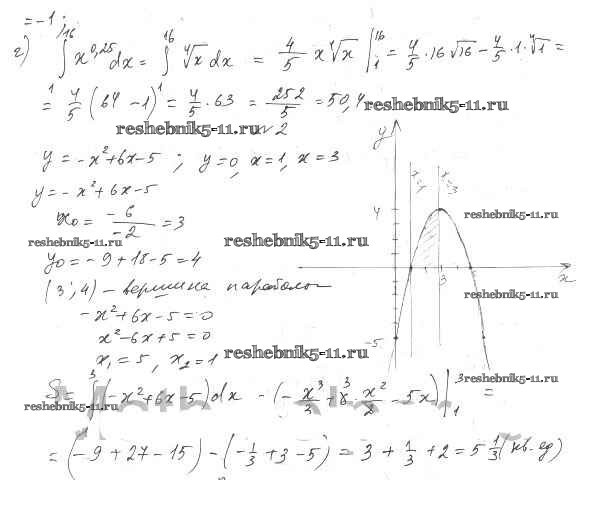 = -1;
г) ∫₁¹⁶ x^0,25 dx = ∫₁¹⁶ ⁴√x dx = 4/5 x ⁴√x |₁¹⁶ = 4/5 · 16 √16 - 4/5 · 1 · ⁴√1 =
= 4/5 (64 - 1) = 4/5 · 63 = 252/5 = 50,4
reshebnik5-11.ru
reshebnik5-11.ru
№2
y = -x² + 6x - 5 ; y = 0, x = 1, x = 3
y = -x² + 6x - 5
x₀ = -6/-2 = 3
reshebnik5-11.ru
reshebnik5-11.ru
y₀ = -9 + 18 - 5 = 4
(3; 4) - вершина параболы
-x² + 6x - 5 = 0
x² - 6x + 5 = 0
x₁ = 5, x₂ = 1
reshebnik5-11.ru
y
x=1
x=3
4
reshebnik5-11.ru
3
x
reshebnik5-11.ru
-5
reshebnik5-11.ru
S = ∫₁³ (-x² + 6x - 5) dx - (-x³/3 - 6³ · x²/2 - 5x) |₁³ =
reshebnik5-11.ru
reshebnik5-11.ru
= (-9 + 27 - 15) - (-1/3 + 3 - 5) = 3 + 1/3 + 2 = 5 1/3 (кв. ед)